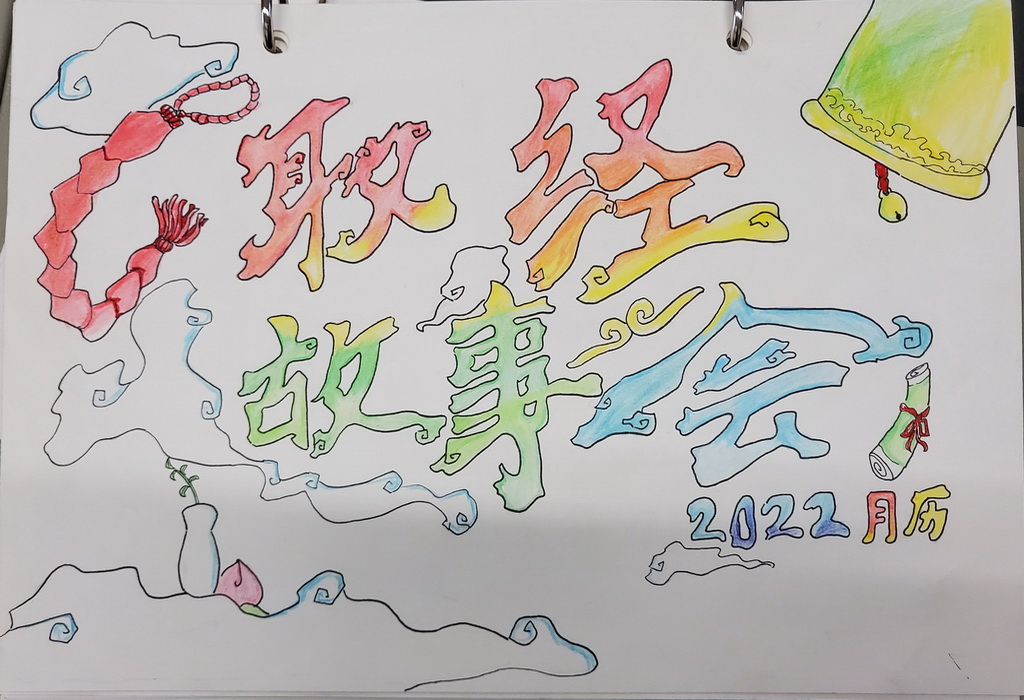 取经
故事会
2022月历